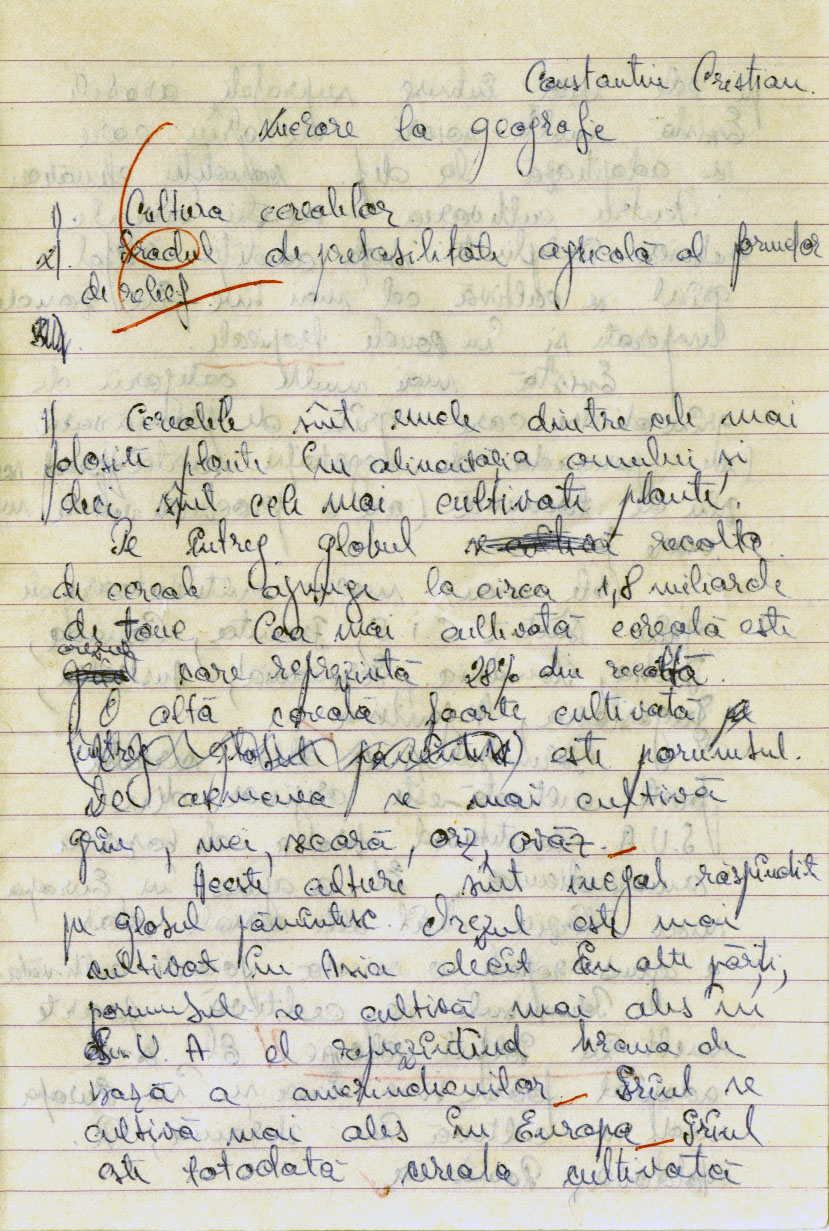 Constantin Cristian.
Lucrare la geografie
1). Cultura cerealelor
2). Gradul de pretabilitate agricolă al formelor
de relief.
1) Cerealele sînt unele dintre cele mai
folosite plante în alimentația omului și
deci sînt cele mai cultivate plante.
Pe întreg globul se cultivă recolta
de cereale ajunge la circa 1,8 miliarde
de tone. Cea mai cultivată cereală este
orezul
care reprezintă 28% din recoltă.
O altă cereală foarte cultivată pe
(întreg globul pământesc) este porumbul.
De asemenea se mai cultivă
grîu, mei, secară, orz, ovăz.
Aceste culturi sînt inegal răspîndite
pe globul pământesc. Orezul este mai
cultivat în Asia decît în alte părți,
porumbul se cultivă mai ales în
S.U.A el reprezintînd hrana de
bază a amerindienilor. Grîul se
cultivă mai ales în Europa. Grîul
este totodată cereala cultivată